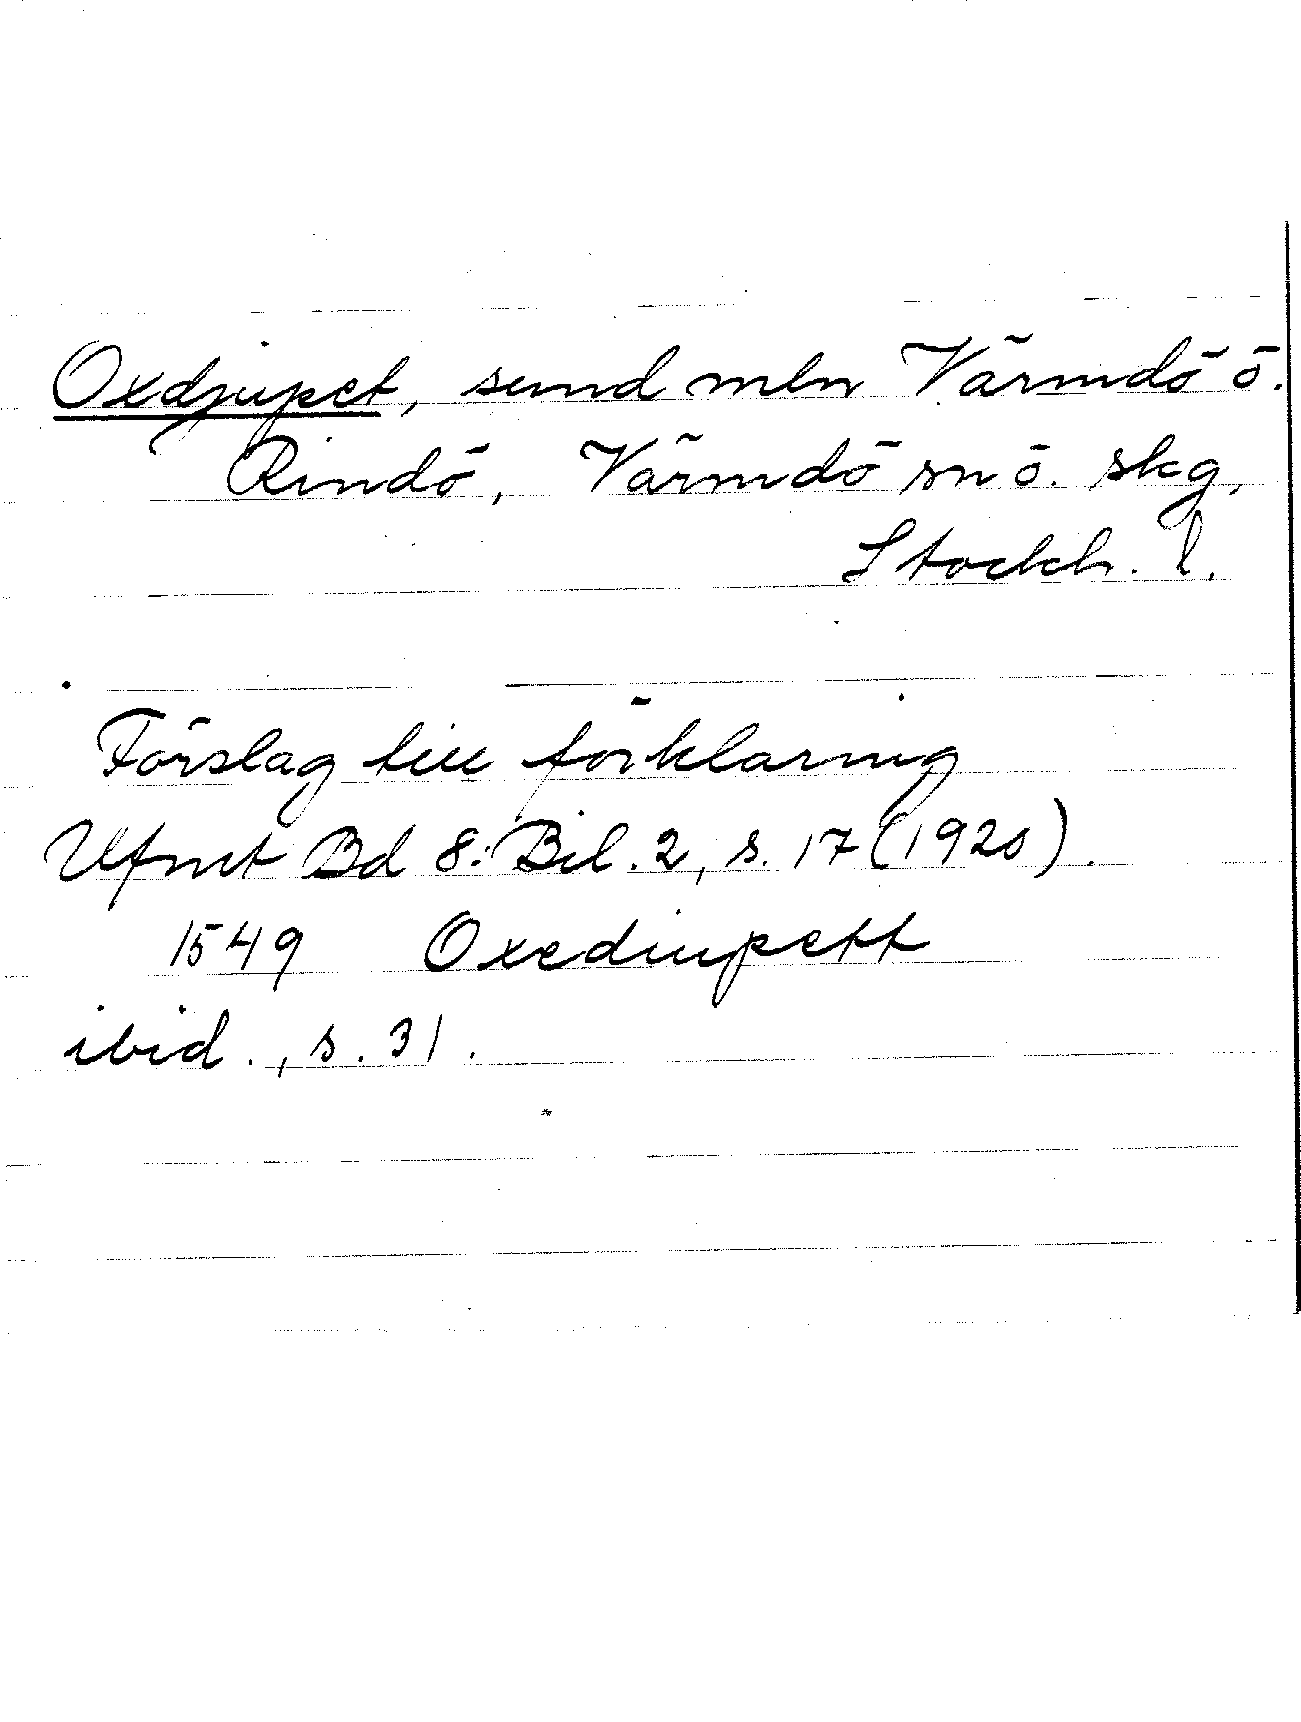 Oxdjupet, sund mln Värmdö ö.
Rindö, Värmdö sn o. skg,
Stockh. l.
Förslag till förklaring
Ufmt Bd 8: Bil. 2, s. 17 (1920).
1549 Oxediupett
ibid., s. 31.